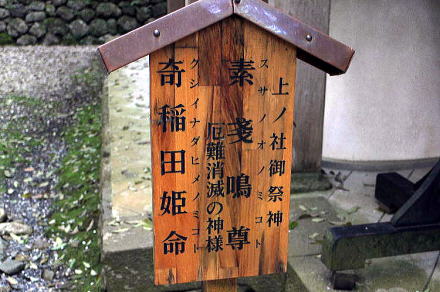 上ノ社御祭神
スサノオノミコト
素戔鳴尊
厄難消滅の神様
クシイナダヒメノミコト
奇稲田姫命